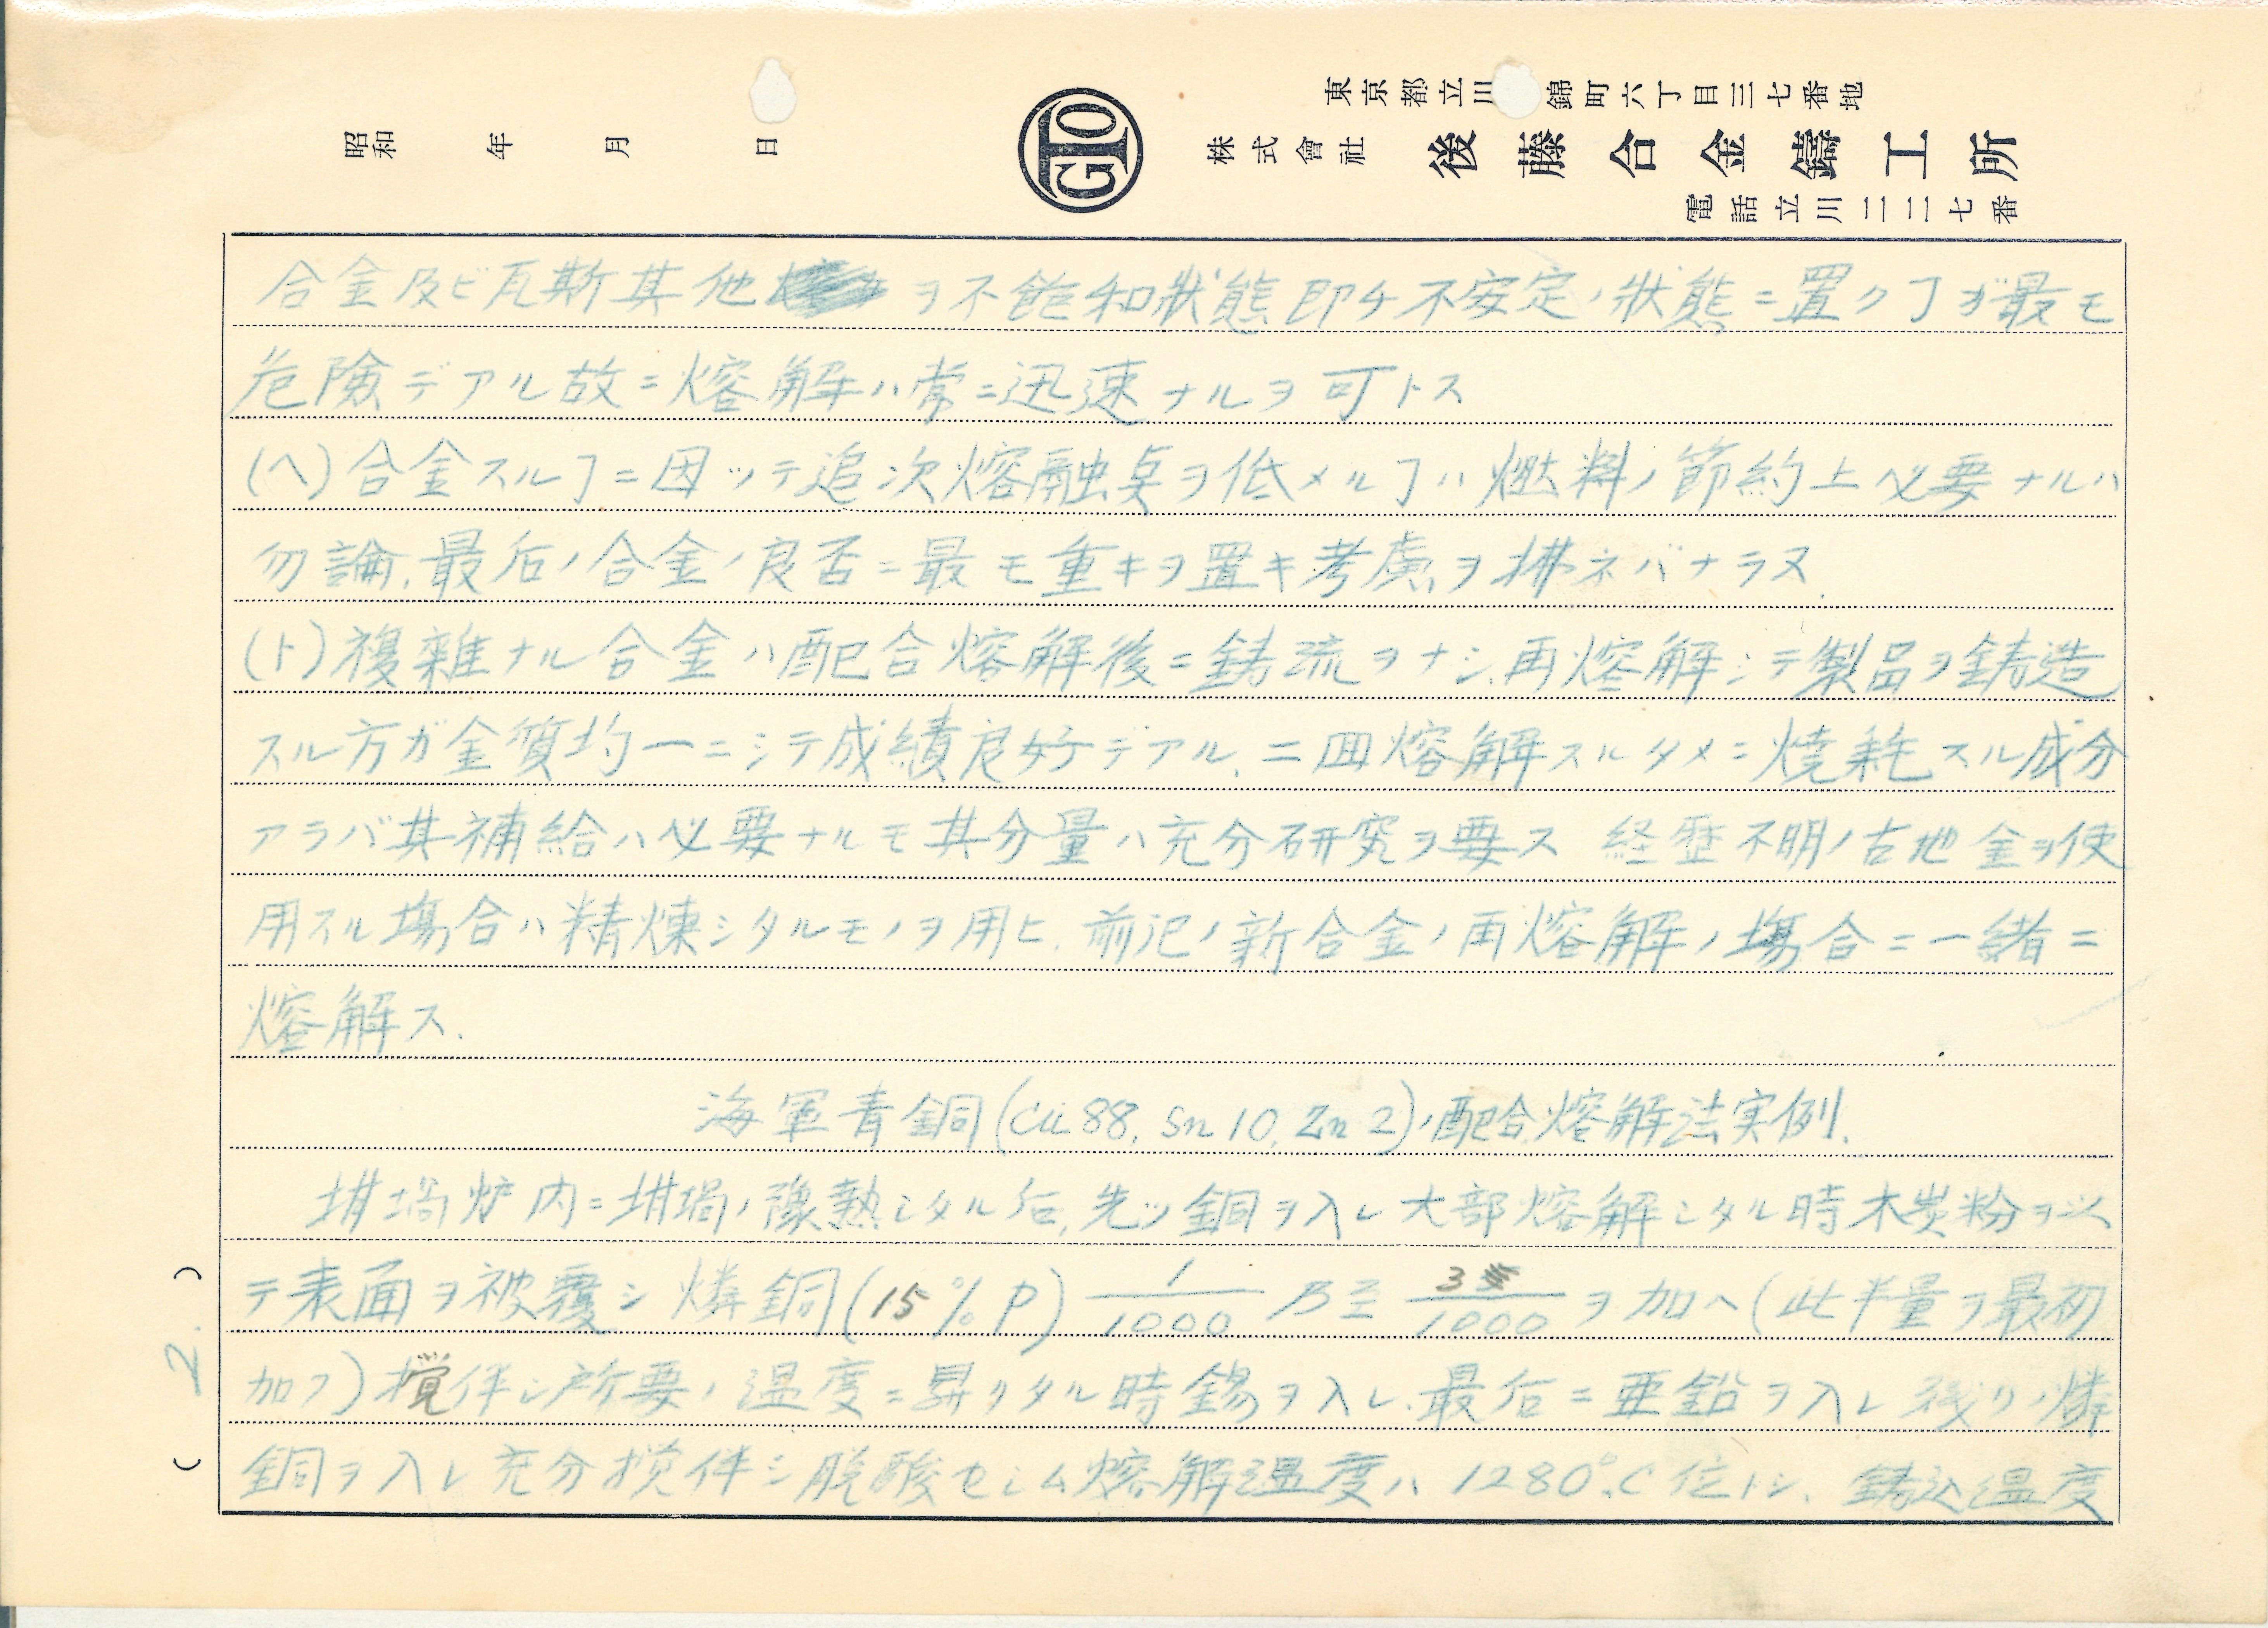 東京都立川 錦町六丁目三七番地
昭和 年 月 日
GTO
株式會社 後藤合金鑄工所
電話立川二二七番
合金及ビ瓦斯其他 ヲ不飽和狀態即チ不安定ノ狀態ニ置クヿガ最モ
危険デアル故ニ熔解ハ常ニ迅速ナルヲ可トス
(ヘ)合金スルヿニ因ッテ追次熔融点ヲ低メルヿハ燃料ノ節約上必要ナルハ
勿論、最后ノ合金ノ良否ニ最モ重キヲ置キ考慮ヲ拂ネバナラヌ.
(ト)複雑ナル合金ハ配合熔解後ニ鋳流ヲナシ、再熔解シテ製品ヲ鋳造
スル方ガ金質均一ニシテ成績良好デアル、二回熔解スルタメニ焼耗スル成分
アラバ其補給ハ必要ナルモ其分量ハ充分研究ヲ要ス 経歴不明ノ古地金ヲ使
用スル場合ハ精煉シタルモノヲ用ヒ、前記ノ新合金ノ再熔解ノ場合ニ一緒ニ
熔解ス.
海軍青銅(Cu 88, Sn 10, Zn 2)ノ配合熔解法実例.
坩堝炉内ニ坩堝ノ豫熱シタル后、先ッ銅ヲ入レ大部熔解シタル時木炭粉ヲ以
テ表面ヲ被覆シ 燐銅(15% P) 1/1000 乃至 3/1000 ヲ加ヘ(此半量ヲ最初
加フ)攪伴シ所要ノ温度ニ昇リタル時錫ヲ入レ、最后ニ亜鉛ヲ入レ残リノ燐
銅ヲ入レ充分攪伴シ脱酸セシム熔解温度ハ1280°C位トシ、鋳込温度
( 2. )